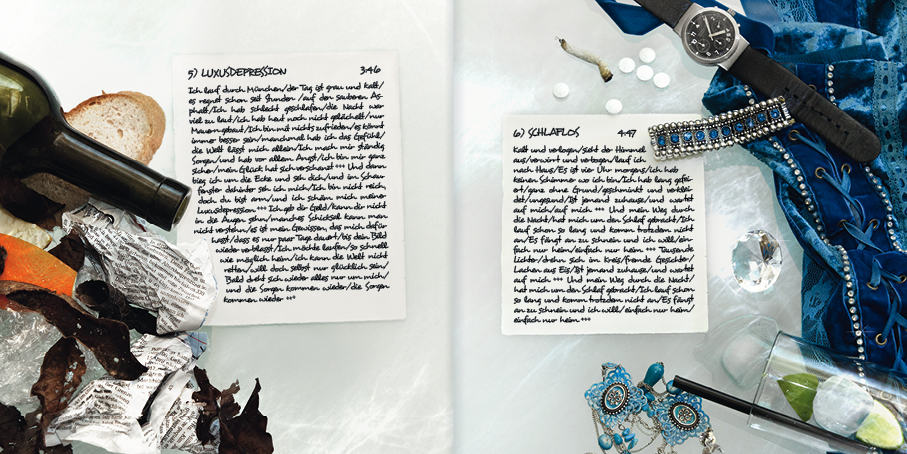 5) LUXUSDEPRESSION 3:46
Ich lauf durch München/der Tag ist grau und kalt/
es regnet schon seit Stunden /auf den sauberen As-
phalt/Ich hab schlecht geschlafen/die Nacht war
viel zu laut/ich hab heut noch nicht gelächelt/nur
Mauern gebaut/Ich bin mit nichts zufrieden/es könnt
immer besser sein/manchmal hab ich das Gefühl/
die Welt lässt mich allein/Ich mach mir ständig
Sorgen/und hab vor allem Angst/ich bin mir ganz
sicher/mein Glück hat sich verschanzt +++ Und dann
bieg ich um die Ecke und seh dich/und im Schau-
fenster dahinter seh ich mich/Ich bin nicht reich,
doch du bist arm/und ich schäm mich meiner
Luxusdepression. +++ Ich geb dir Geld/kann dir nicht
in die Augen sehn/manches Schicksal kann man
nicht verstehn/es ist mein Gewissen, das mich dafür
hasst/dass es nur paar Tage dauert/bis dein Bild
wieder verblasst/Ich möchte laufen/so schnell
wie möglich heim/ich kann die Welt nicht
retten/will doch selbst nur glücklich sein/
Bald dreht sich wieder alles nur um mich/
und die Sorgen kommen wieder/die Sorgen
kommen wieder +++
6) SCHLAFLOS 4:47
Kalt und verlogen/sieht der Himmel
aus/verwirrt und verbogen/lauf ich
nach Haus/Es ist vier Uhr morgens/ich hab
keinen Schimmer wo ich bin/Ich hab lang gefei-
ert/ganz ohne Grund/geschminkt und verklei-
det/ungesund/Ist jemand zuhause/und wartet
auf mich/auf mich +++ Und mein Weg durch
die Nacht/hat mich um den Schlaf gebracht/Ich
lauf schon so lang und komm trotzdem nicht
an/Es fängt an zu schnein und ich will/ein-
fach nur heim/einfach nur heim +++ Tausende
Lichter/drehn sich im Kreis/fremde Gesichter/
Lachen aus Eis/Ist jemand zuhause/und wartet
auf mich +++ Und mein Weg durch die Nacht/
hat mich um den Schlaf gebracht/Ich lauf schon
so lang und komm trotzdem nicht an/Es fängt
an zu schnein und ich will/einfach nur heim/
einfach nur heim +++